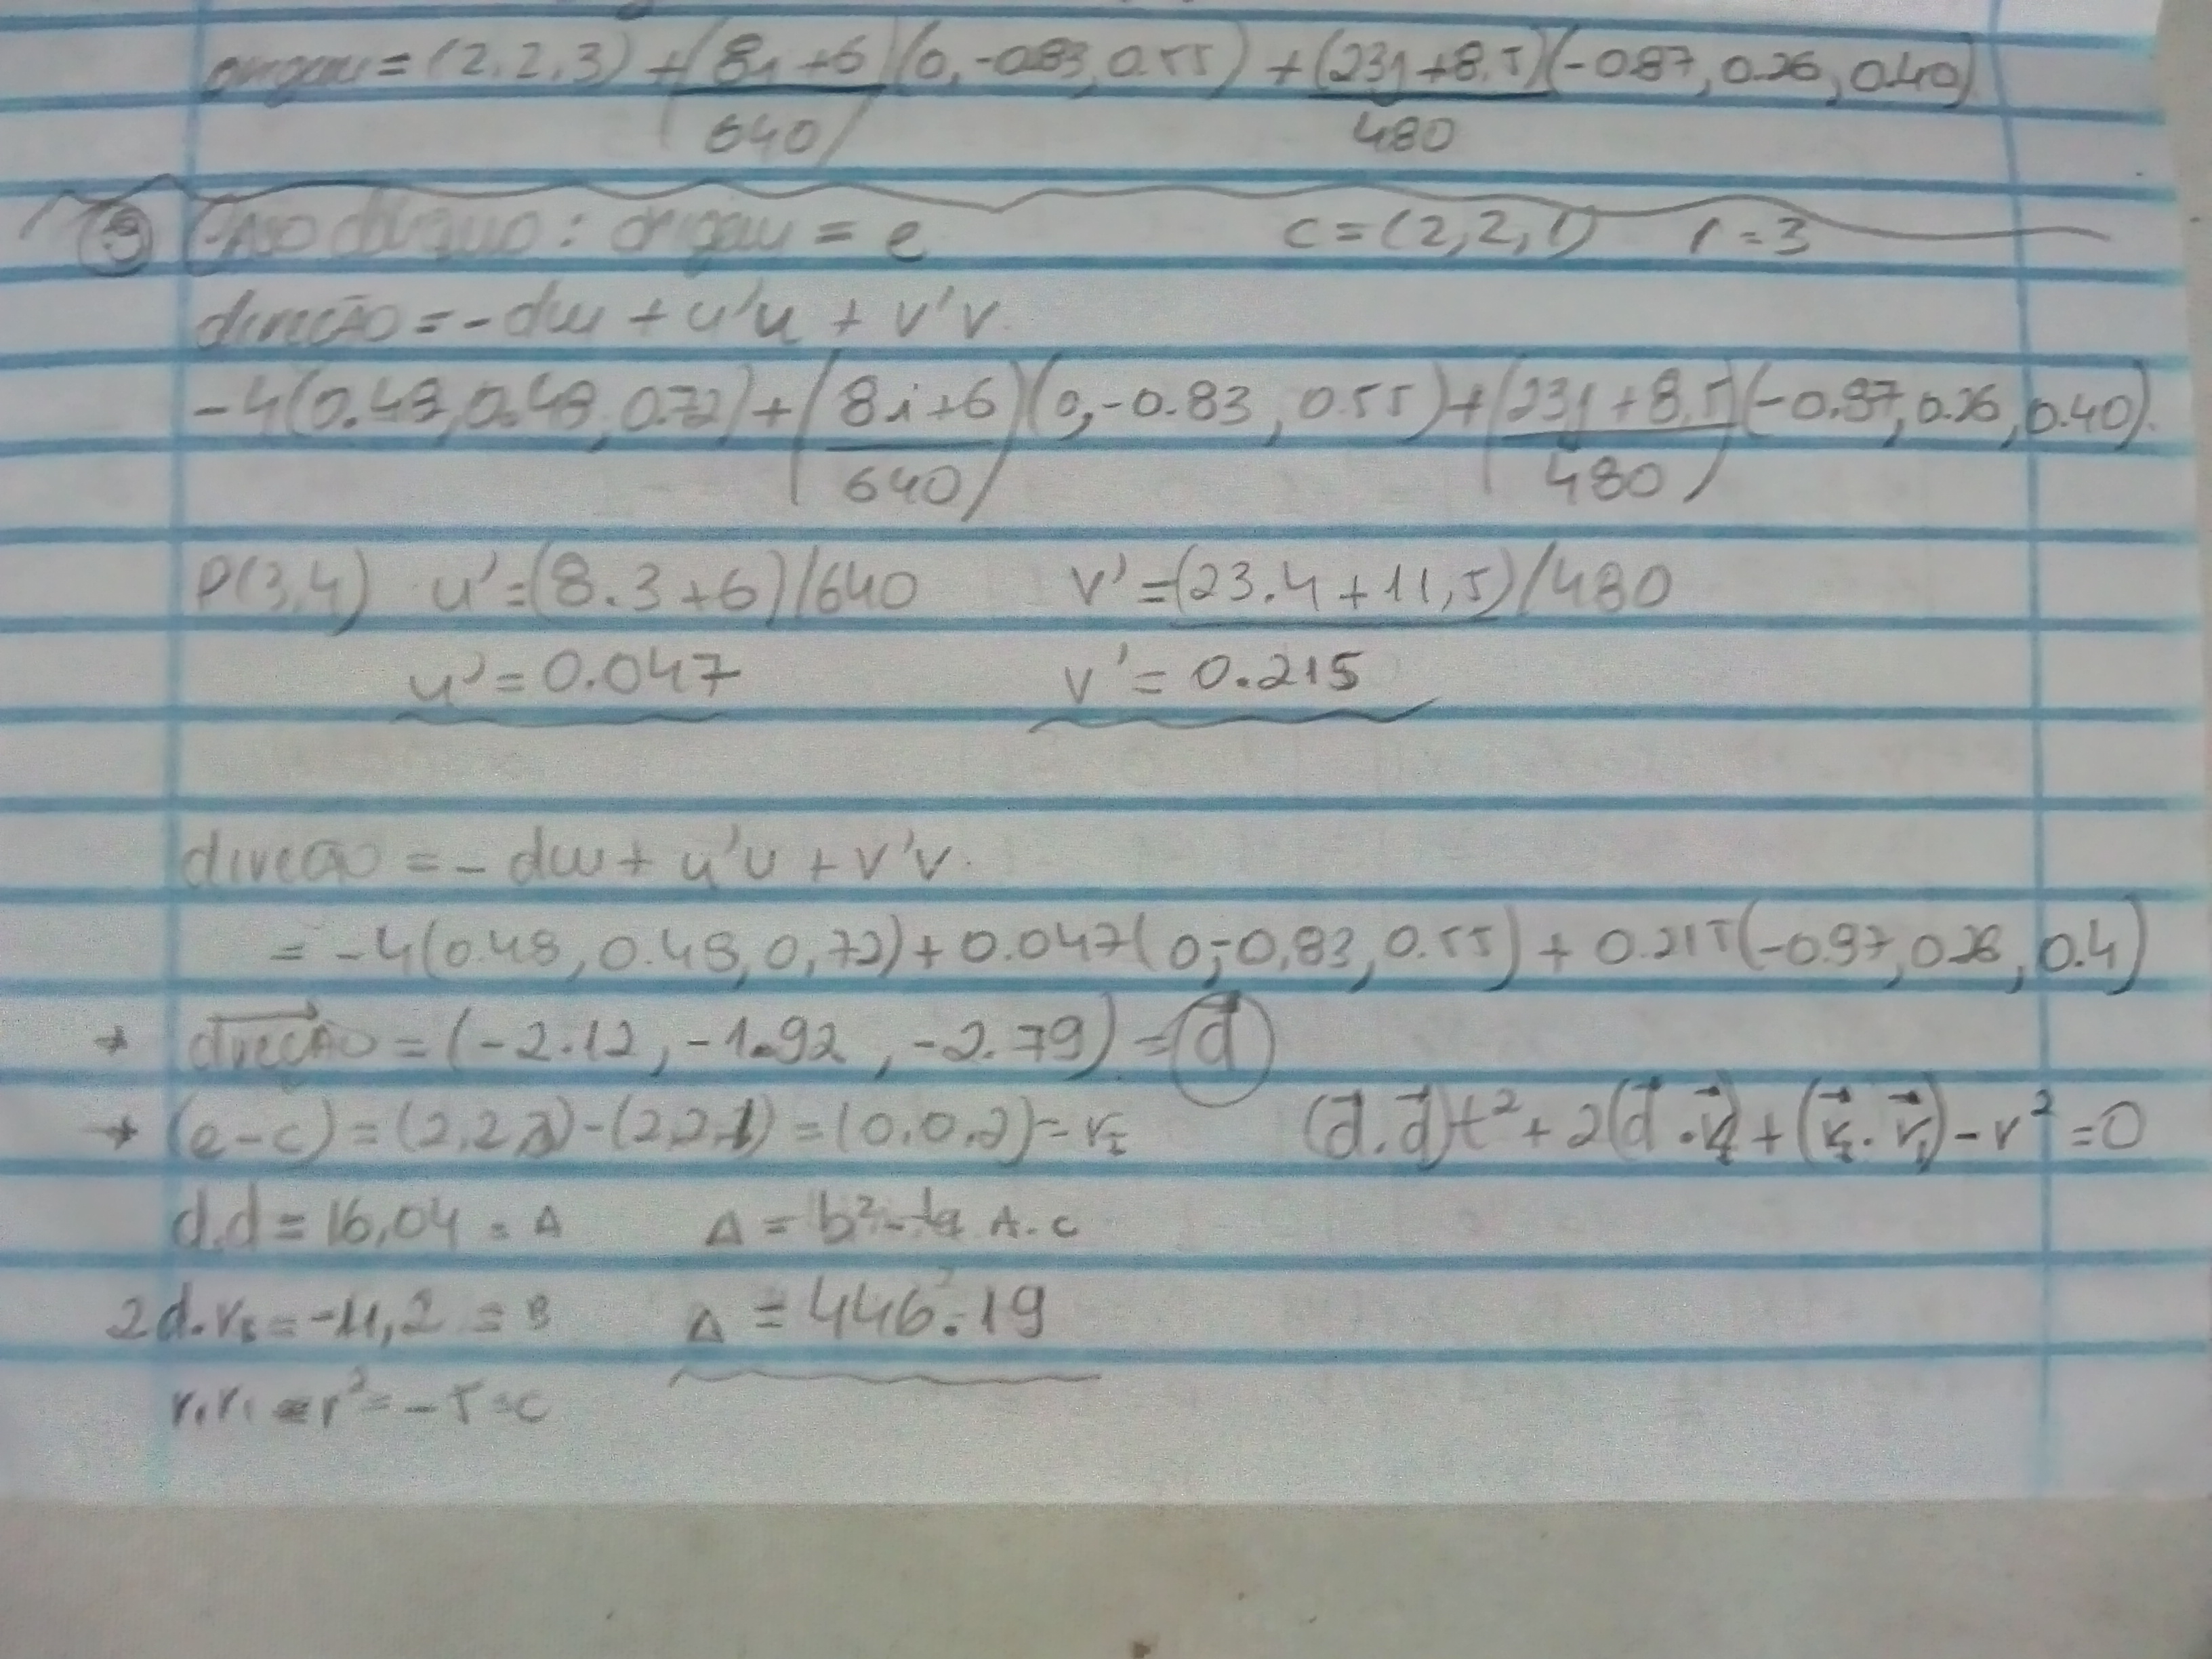 origem = (2,2,3) + (8i+6)/640 (0,-0.83,0.55) + (23j+8,5)/480 (-0.87,0.26,0.40)
③ Caso oblíquo: origem = e c = (2,2,1) r = 3
direção = -dw + u'u + v'v
-4(0.48,0.48,0.72) + (8i+6)/640 (0,-0.83,0.55) + (23j+8,5)/480 (-0.87,0.26,0.40).
P(3,4) u' = (8.3+6)/640 v' = (23.4+11,5)/480
u' = 0.047 v' = 0.215
direção = -dw + u'u + v'v.
= -4(0.48,0.48,0,72) + 0.047(0,-0,83,0.55) + 0.215(-0.97,0.26,0.4)
→ direção = (-2.12, -1.92, -2.79) = d
→ (e-c) = (2,2,3)-(2,2,1) = (0,0,2) = r₁ (d.d)t² + 2(d.r₁) + (r₁.r₁) - r² = 0
d.d = 16,04 = A Δ = b² - 4 A.c
2d.r₁ = -11,2 = B Δ = 446.19
r₁r₁ - r² = -5 = c